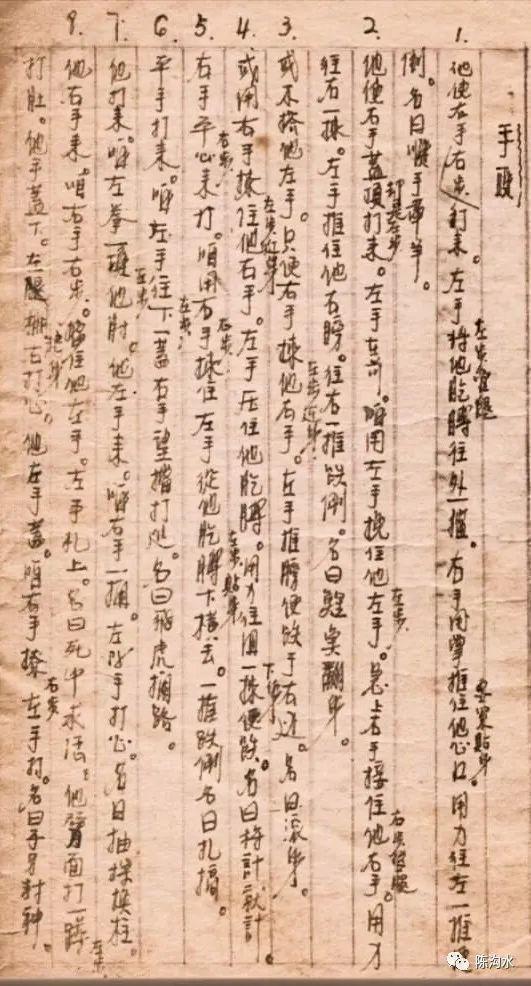 手段
1. 他使右手右步打来。左手将他肐膊往外一摧。右手用掌推住他心口。用力往左一推便
左步管腿
要紧贴身
倒。名曰顺手牵羊。
2. 他使右手盖顶打来。左手在前。咱用左手挽住他左手。急上右手接住他右手。用力
却是左步
左步
右步管腿
往右一揉。左手推住他右膀。往右一推跌倒。名曰 翻身。
左步近身
3. 或不搭他左手。只使右手揉他右手。左手推膀便跌于右边。名曰滚身。
左步近身
下身
4. 或用右手揉住他右手。左手压住他肐膊。用力往怀一揉便跌。名曰将计就计
右步
左步贴身
5. 右手平心来打。咱用右手揉住左手从他肐膊下横去。一推跌倒名曰扎搞。
右步
左步
6. 平手打来。咱左手往下一盖右手望 打处。名曰飞虎拦路。
左步
7. 他打来。咱左拳一 他肘。他左手来。咱右手一拥。左 手打心。名曰抽梁换柱。
8. 他右手来。咱右手右步。 住他左手。左手扎上。名曰死中求活。他 面打一
左步
打肚。他手盖下。左腿 右打心。他左手盖。咱右手撩左手打。名曰手另封神。
绝身
右步
陈沟水